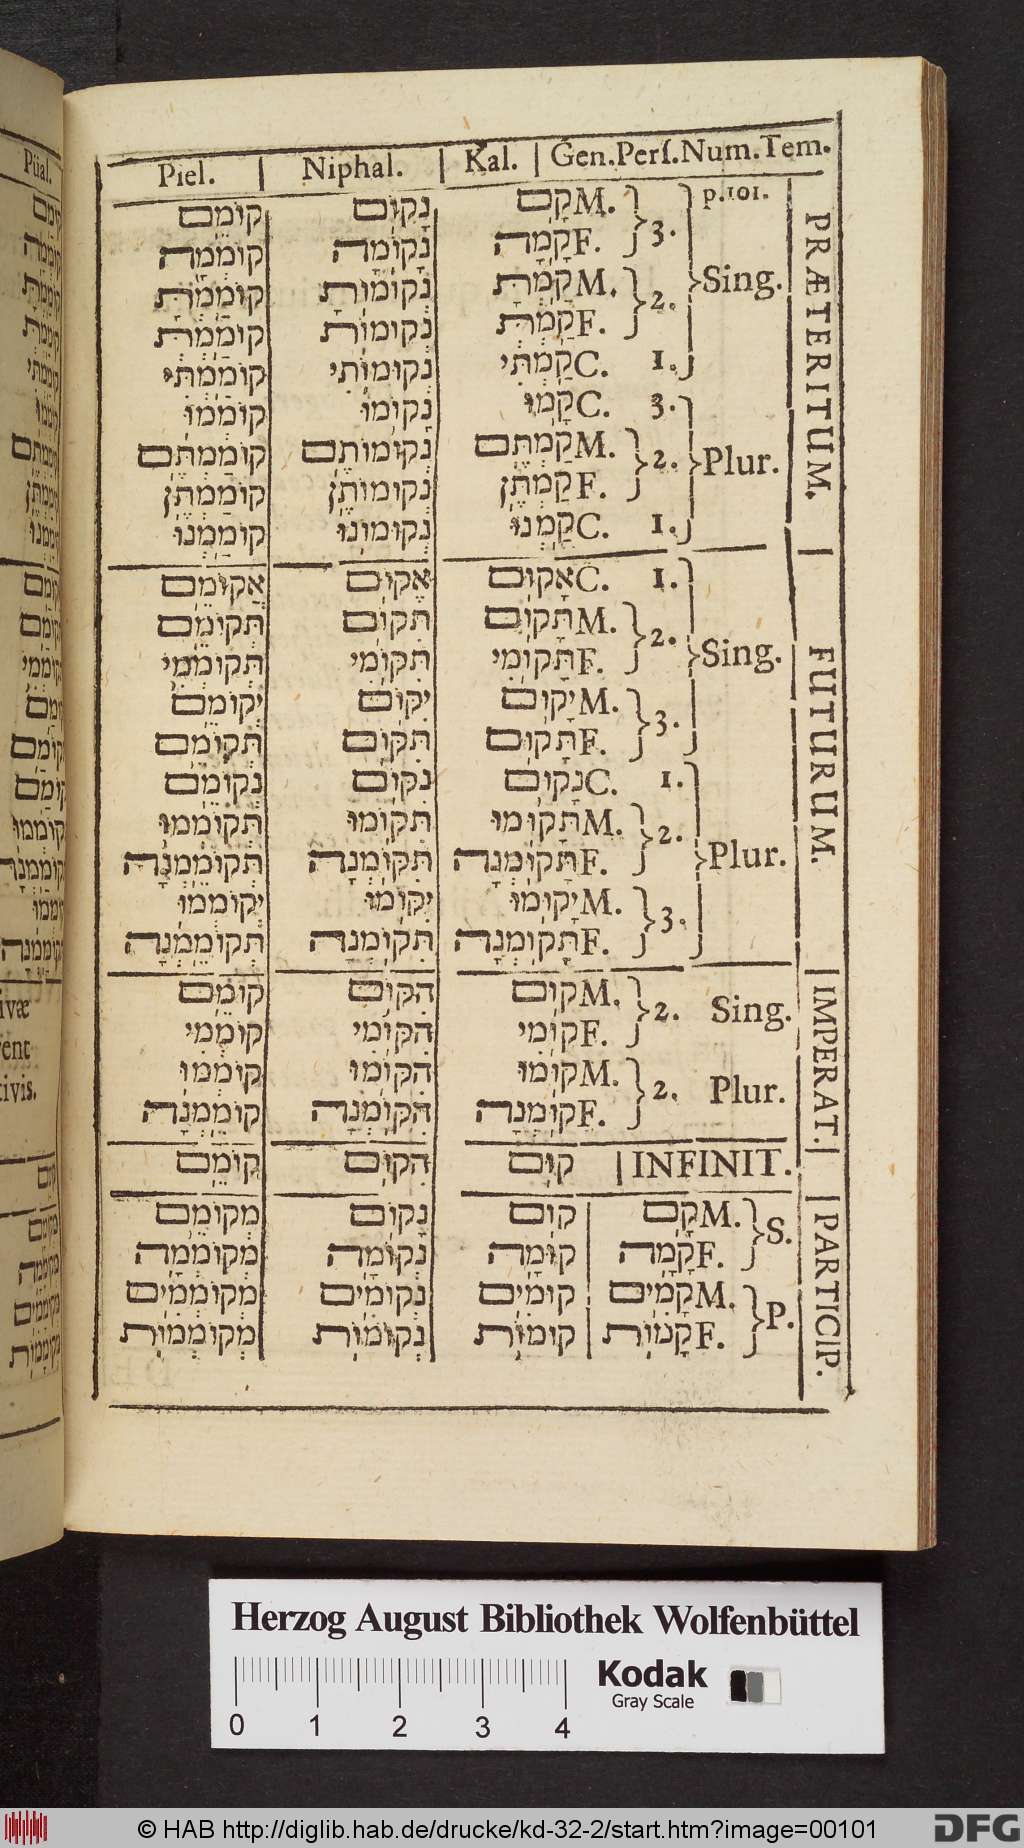 Piel. | Niphal. | Kal. | Gen. Perſ. Num. Tem.
p. 101.
PRÆTERITUM.
קוֹמֵם נָקוֹם קָם M. 3. Sing.
קוֹמְמָה נָקוֹמָה קָמָה F.
קוֹמַמְתָּ נְקוּמוֹתָ קַמְתָּ M. 2.
קוֹמַמְתְּ נְקוּמוֹת קַמְתְּ F.
קוֹמַמְתִּי נְקוּמוֹתִי קַמְתִּי C. 1.
קוֹמְמוּ נָקוֹמוּ קָמוּ C. 3. Plur.
קוֹמַמְתֶּם נְקוּמוֹתֶם קַמְתֶּם M. 2.
קוֹמַמְתֶּן נְקוּמוֹתֶן קַמְתֶּן F.
קוֹמַמְנוּ נְקוּמוֹנוּ קַמְנוּ C. 1.
FUTURUM.
אֲקוֹמֵם אֶקּוֹם אָקוּם C. 1. Sing.
תְּקוֹמֵם תִּקּוֹם תָּקוּם M. 2.
תְּקוֹמְמִי תִּקּוֹמִי תָּקוּמִי F.
יְקוֹמֵם יִקּוֹם יָקוּם M. 3.
תְּקוֹמֵם תִּקּוֹם תָּקוּם F.
נְקוֹמֵם נִקּוֹם נָקוּם C. 1. Plur.
תְּקוֹמְמוּ תִּקּוֹמוּ תָּקוּמוּ M. 2.
תְּקוֹמֵמְנָה תִּקּוֹמְנָה תָּקוֹמְנָה F.
יְקוֹמְמוּ יִקּוֹמוּ יָקוּמוּ M. 3.
תְּקוֹמֵמְנָה תִּקּוֹמְנָה תָּקוֹמְנָה F.
IMPERAT.
קוֹמֵם הִקּוֹם קוּם M. 2. Sing.
קוֹמְמִי הִקּוֹמִי קוּמִי F.
קוֹמְמוּ הִקּוֹמוּ קוּמוּ M. 2. Plur.
קוֹמֵמְנָה הִקּוֹמְנָה קוֹמְנָה F.
קוֹמֵם הִקּוֹם קוּם | INFINIT.
PARTICIP.
מְקוֹמֵם נָקוֹם קוּם קָם M. S.
מְקוֹמְמָה נְקוֹמָה קוּמָה קָמָה F.
מְקוֹמְמִים נְקוֹמִים קוּמִים קָמִים M. P.
מְקוֹמְמוֹת נְקוֹמוֹת קוּמוֹת קָמוֹת F.
Püal.
ivæ
tivis.
Herzog August Bibliothek Wolfenbüttel
Kodak
Gray Scale
0 1 2 3 4
© HAB http://diglib.hab.de/drucke/kd-32-2/start.htm?image=00101
DFG